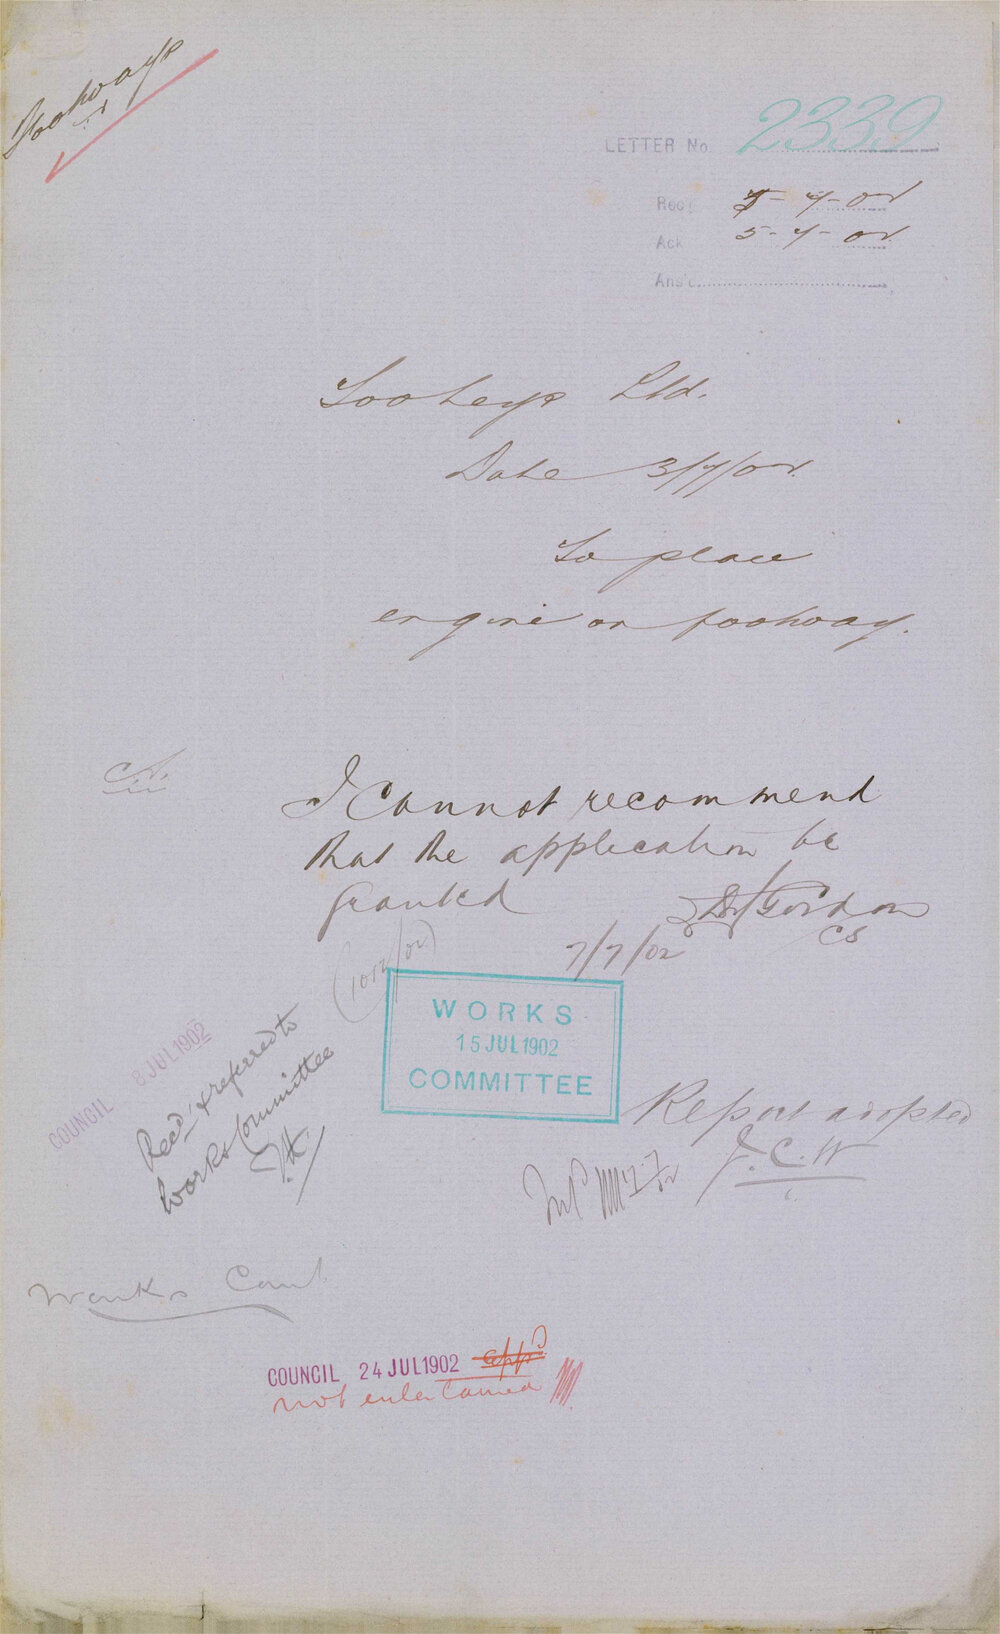 Footways
LETTER No. 2339
Rec'd 5-7-02
Ack 5-7-02
Ans'd
Tooheys Ltd.
Date 3/7/02.
To place
engine on footway.
I cannot recommend
that the application be
granted
Gordon
CS
7/7/02
(1012/02)
WORKS
15 JUL 1902
COMMITTEE
COUNCIL 8 JUL 1902
Recd & referred to
Works Committee
Report adopted
J.C.W
Works Comt
COUNCIL 24 JUL 1902 appd
not entertained